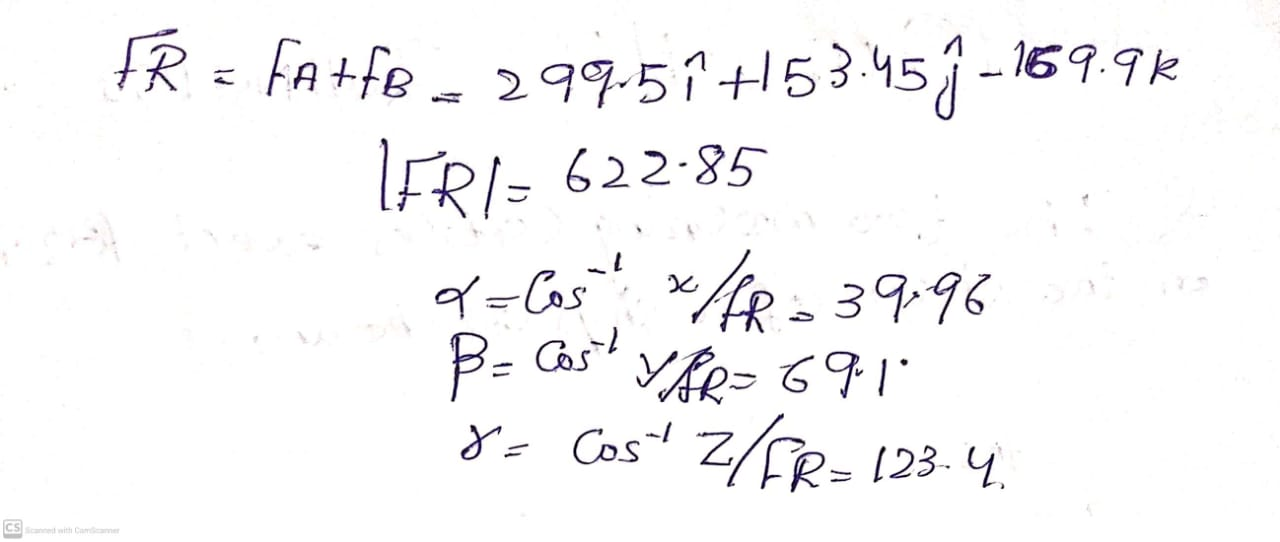 FR = FA+FB = 299.5î +153.45ĵ - 169.9k
|FR| = 622.85
α = Cos⁻¹ x/FR = 39.96
β = Cos⁻¹ y/FR = 69.1°
γ = Cos⁻¹ Z/FR = 123.4
CS Scanned with CamScanner